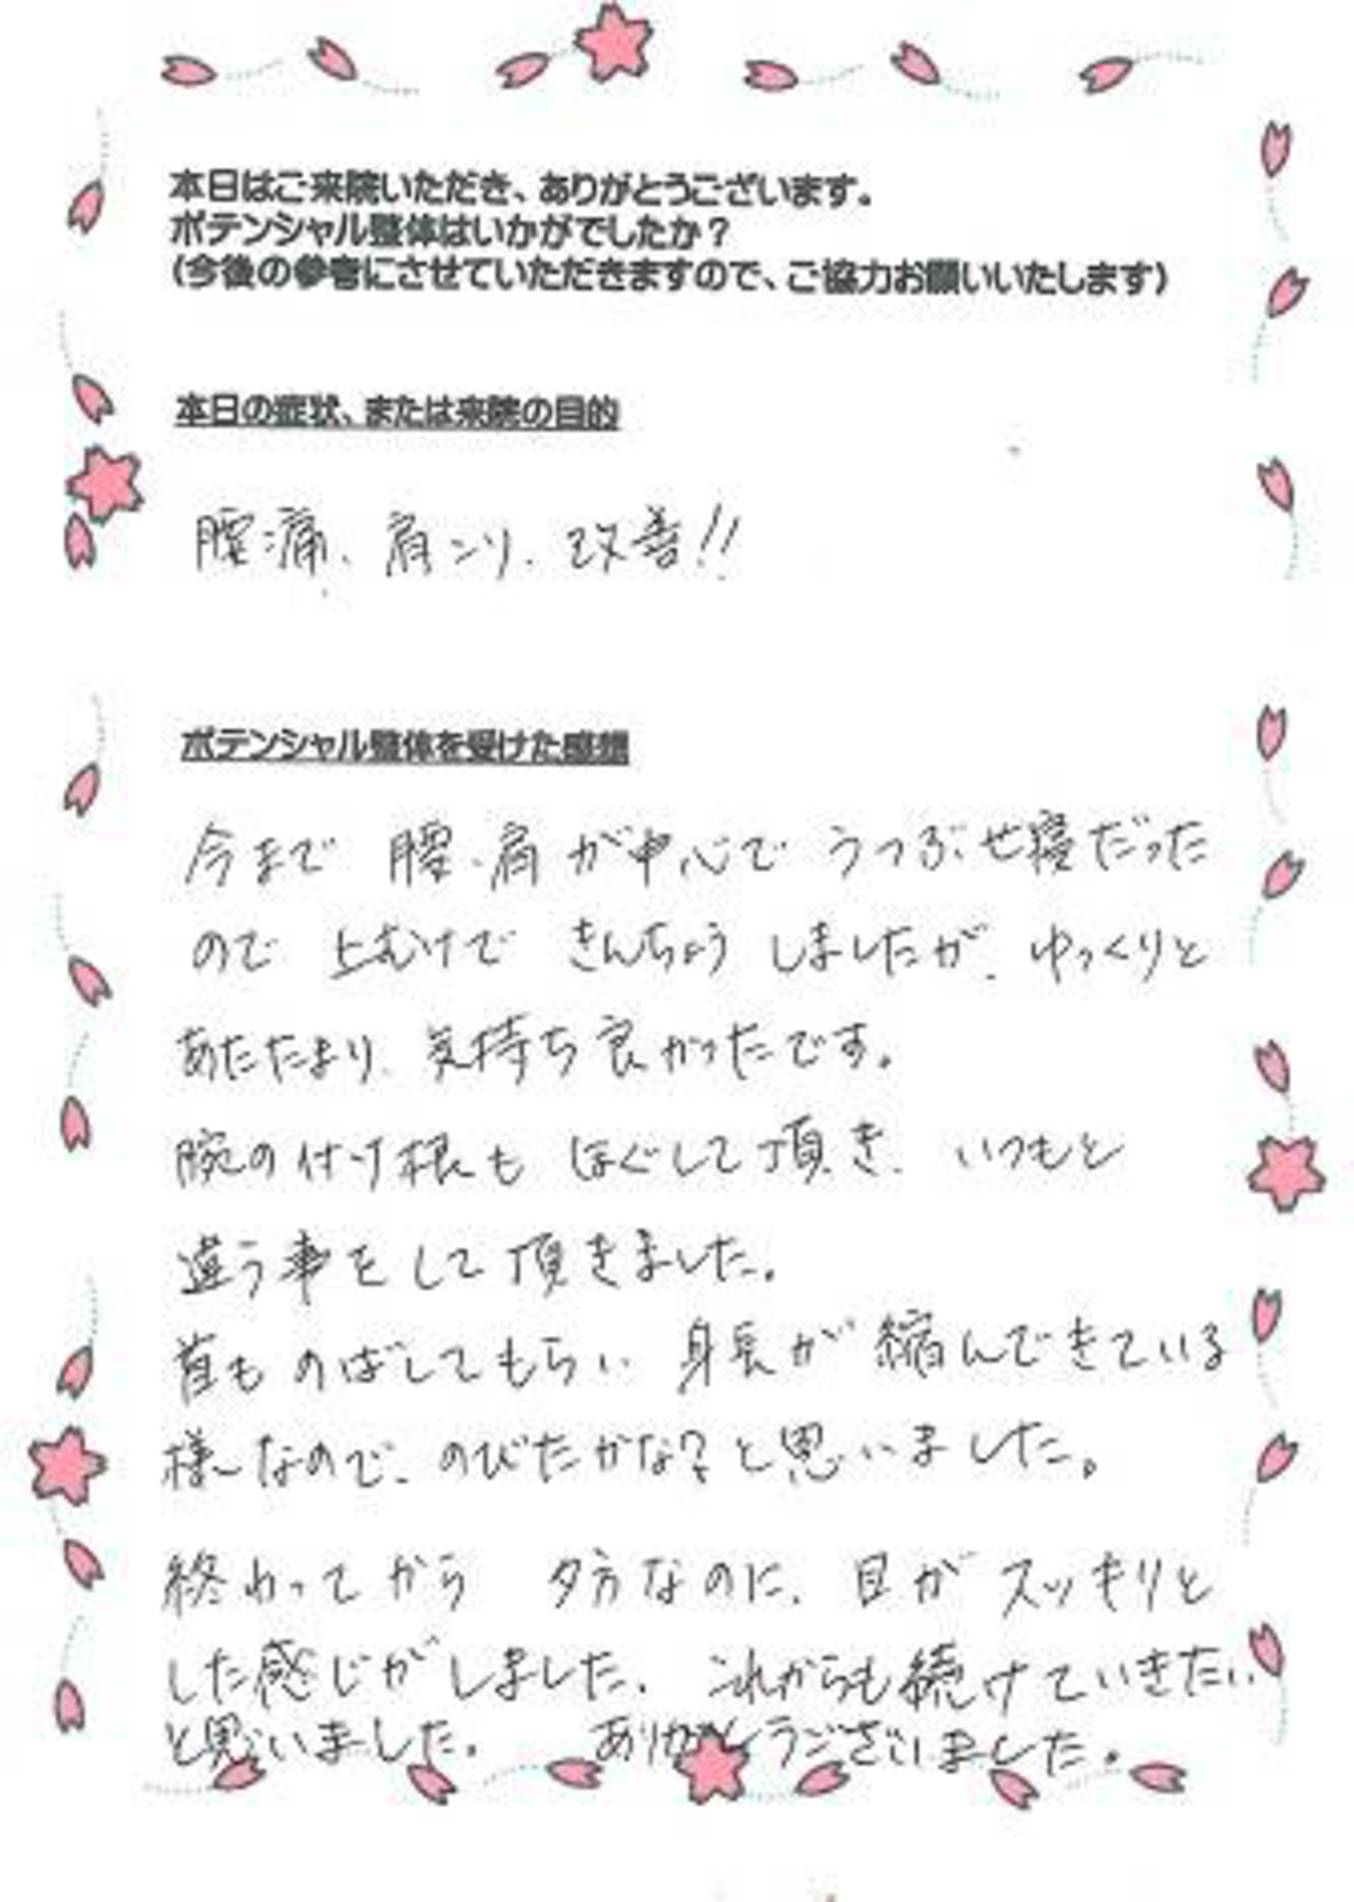 本日はご来院いただき、ありがとうございます。
ポテンシャル整体はいかがでしたか?
(今後の参考にさせていただきますので、ご協力お願いいたします)
本日の症状、または来院の目的
腰痛、肩コリ、改善!!
ポテンシャル整体を受けた感想
今まで 腰、肩が中心で うつぶせ寝だった
ので 上むけで きんちょう しましたが、ゆっくりと
あたたまり、気持ち良かったです。
腕の付け根も ほぐして頂き、いつもと
違う事をして頂きました。
首も のばしてもらい 身長が 縮んできている
様なので、のびたかな?と思いました。
終わってから 夕方なのに、目が スッキリと
した感じがしました。これからも続けていきたい
と思いました。 ありがとうございました。